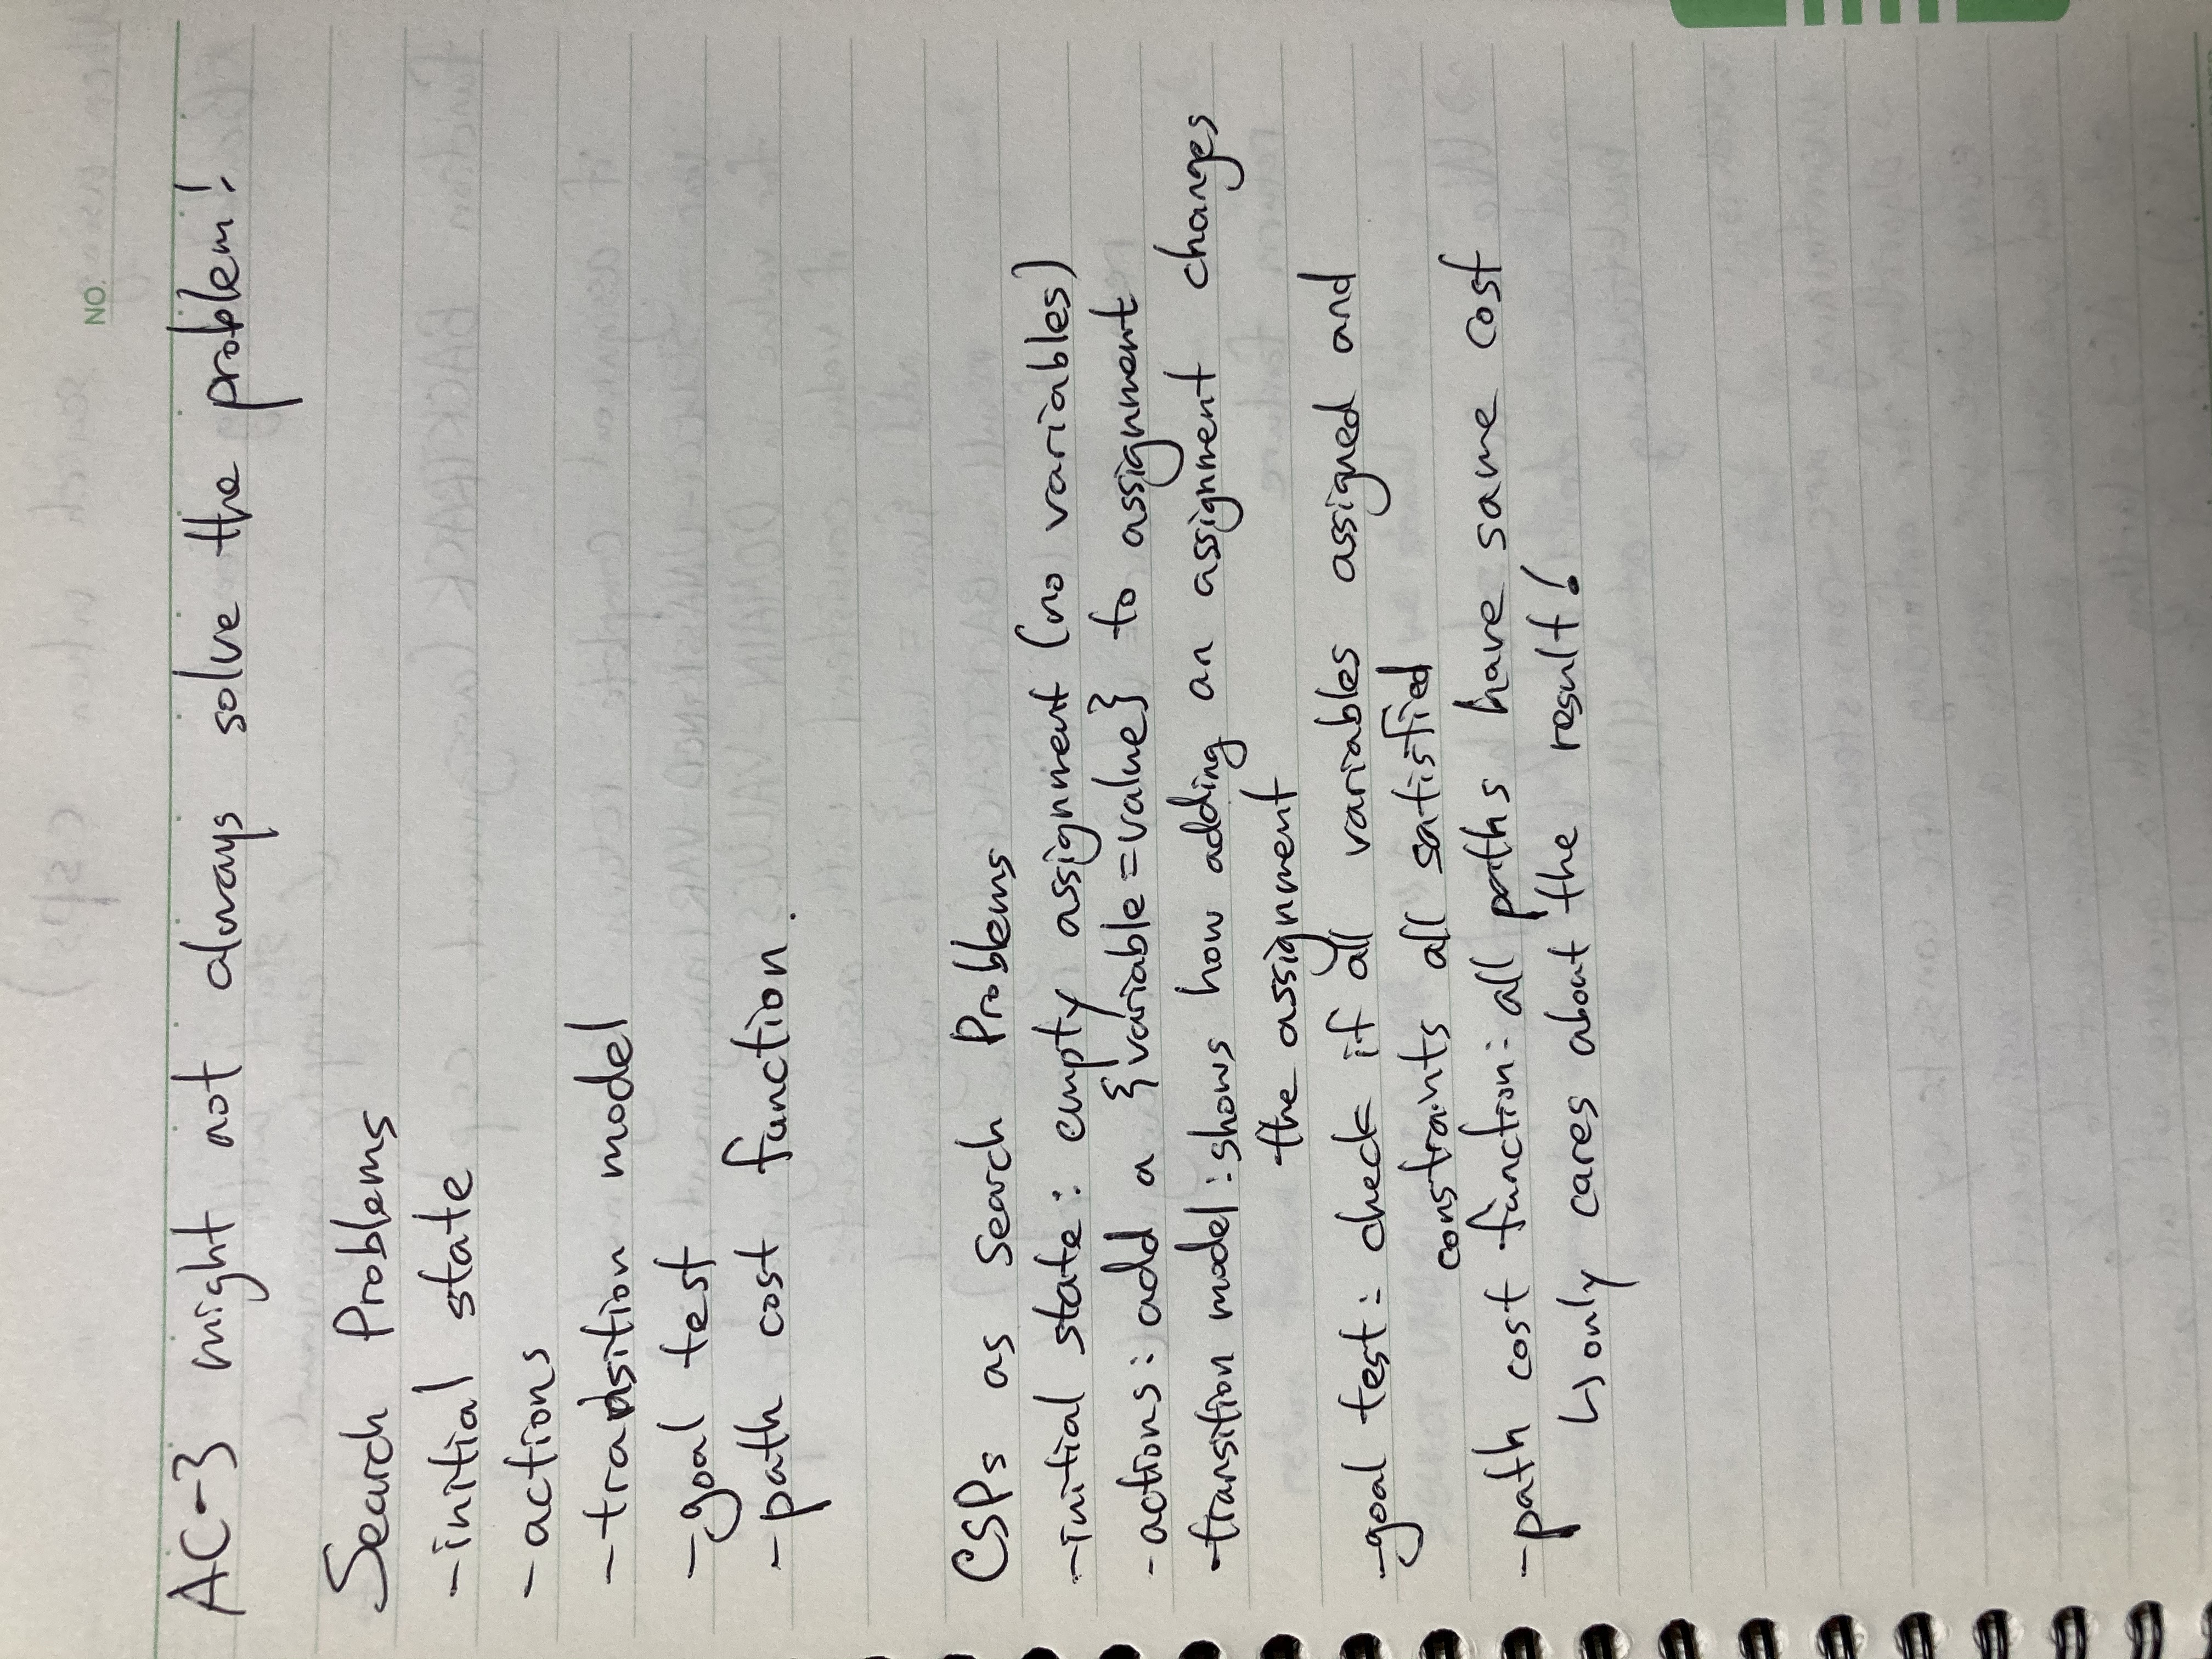 NO.
AC-3 might not always solve the problem!
Search Problems
-initial state
-actions
-transition model
-goal test
-path cost function.
CSPs as Search Problems
-initial state: empty assignment (no variables)
-actions: add a {variable=value} to assignment
-transition model: shows how adding an assignment changes
the assignment
-goal test: check if all variables assigned and
constraints all satisfied
-path cost function: all paths have same cost
↳only cares about the result!